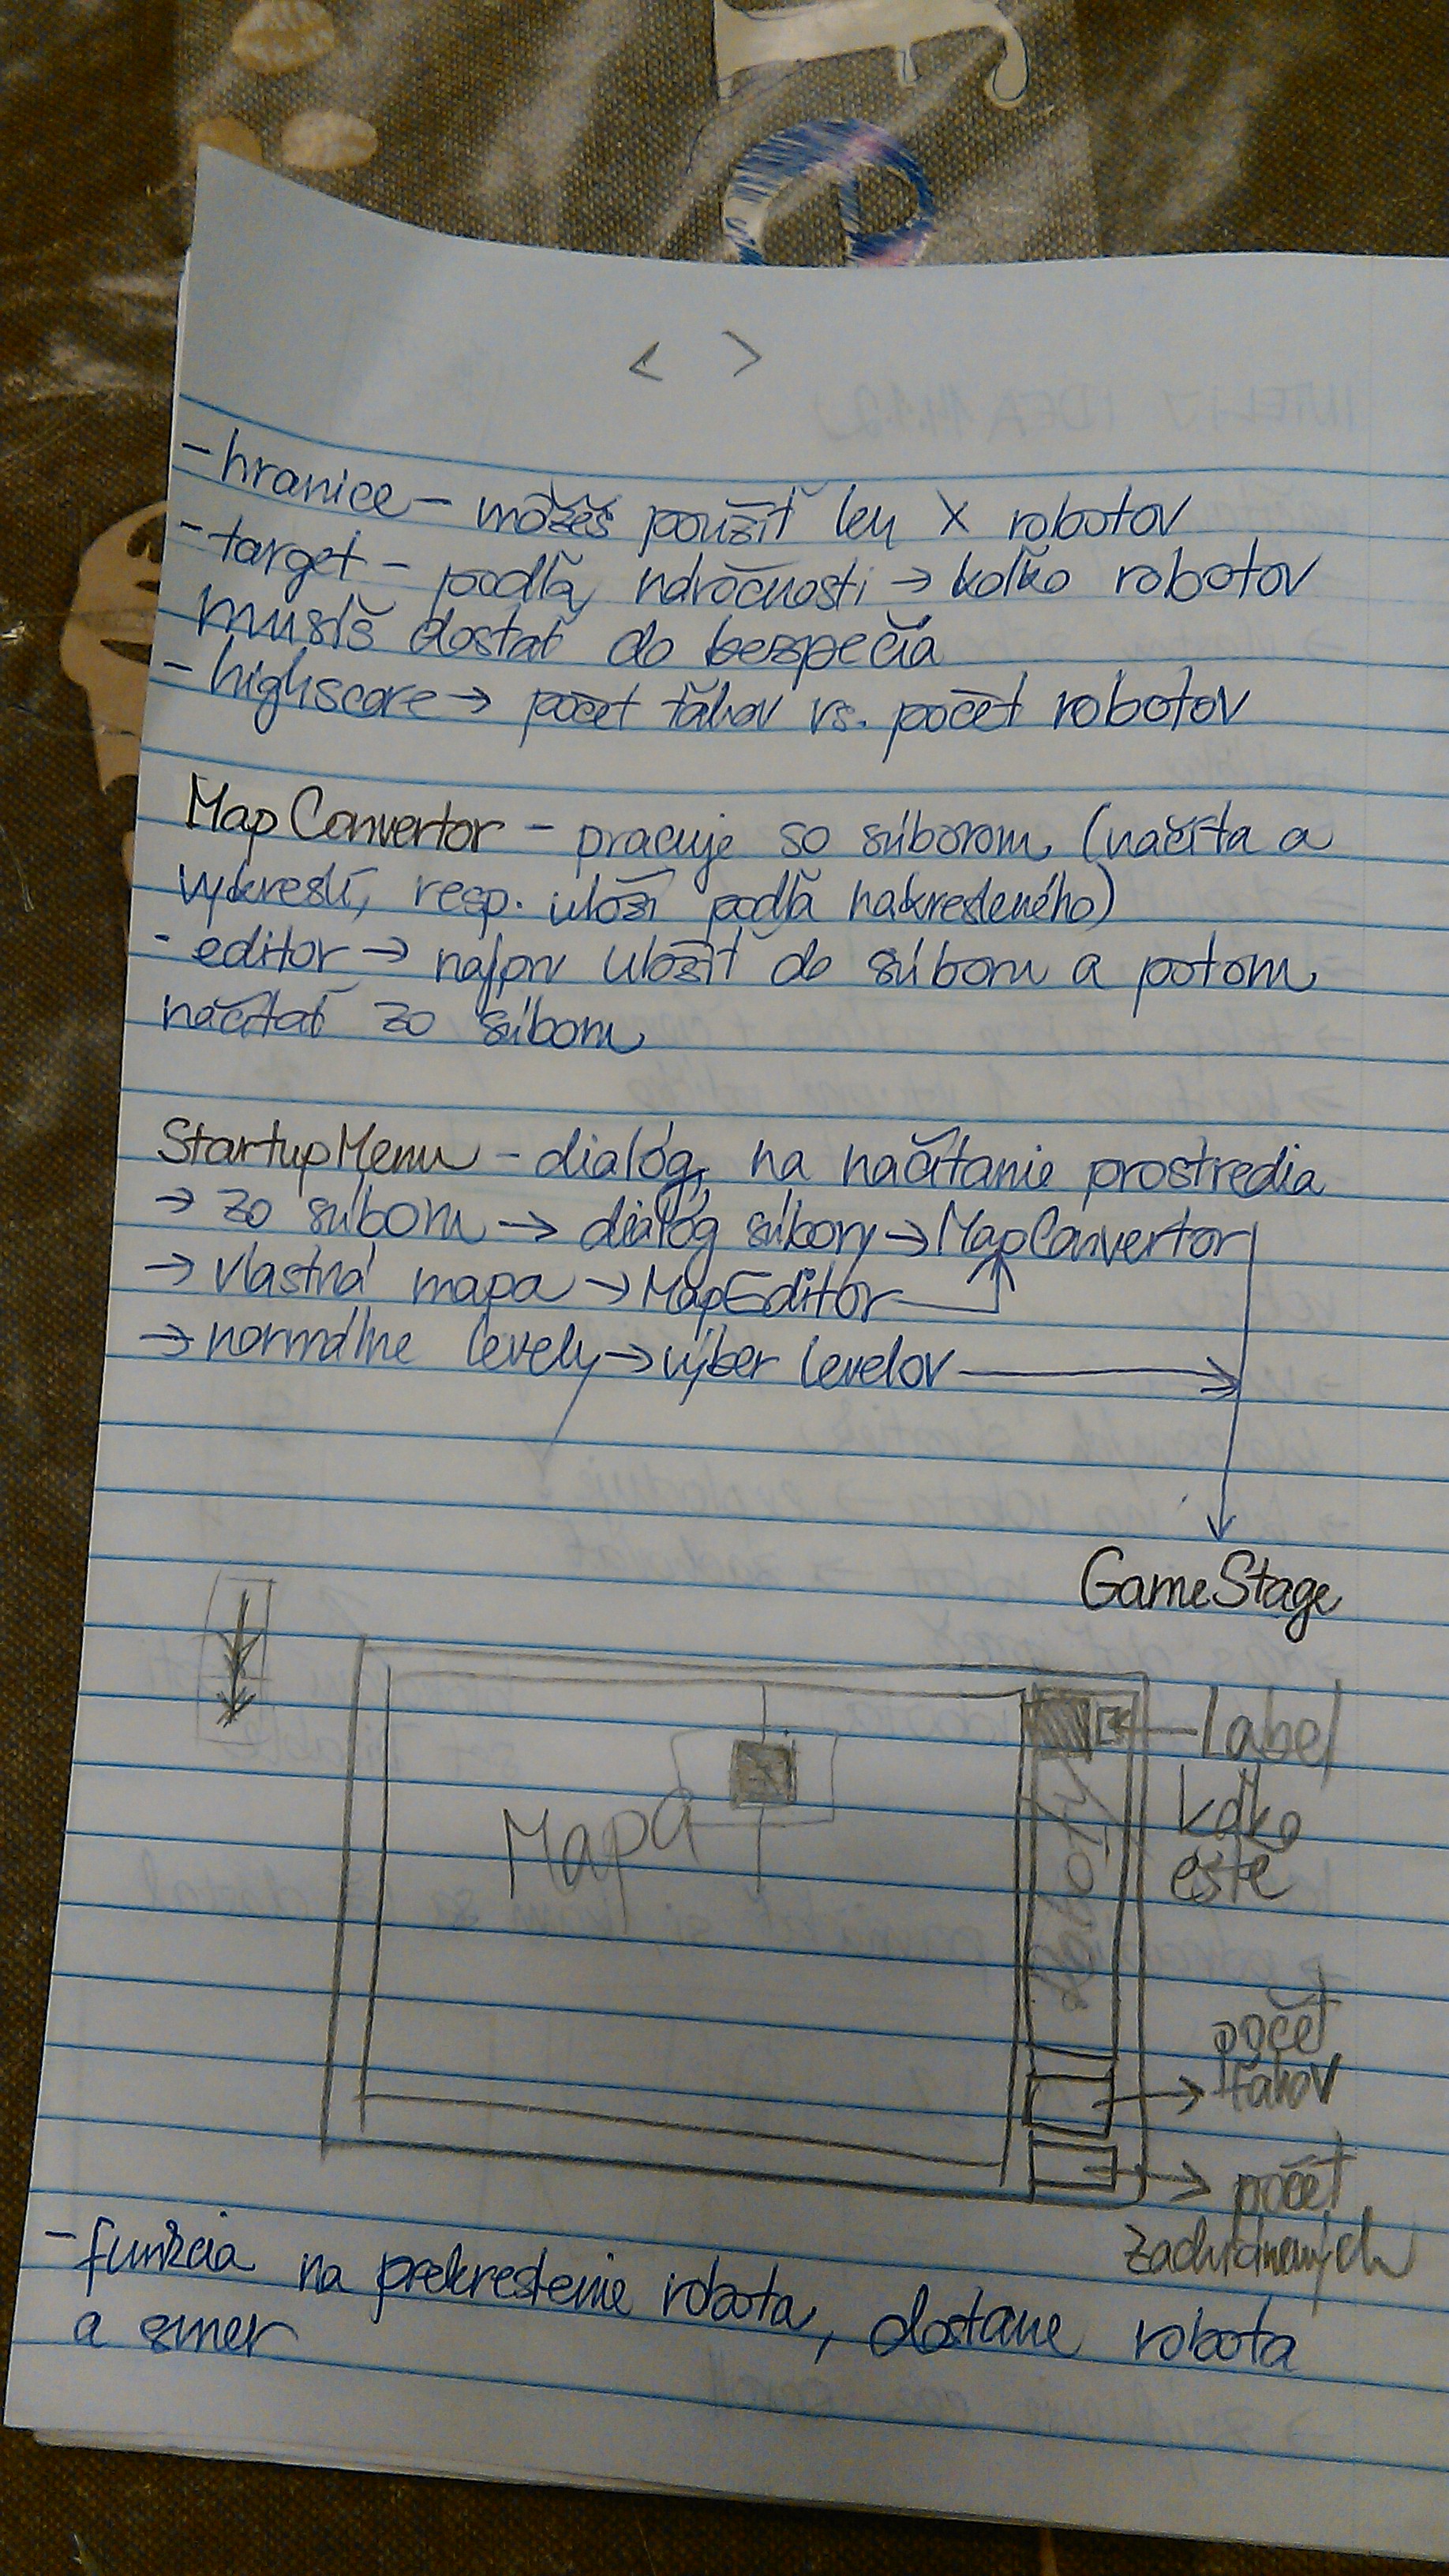 < >
- hranice - môžeš použiť len X robotov
- target - podľa náročnosti → koľko robotov
musíš dostať do bezpečia
- highscore → počet ťahov vs. počet robotov
MapConvertor - pracuje so súborom (načíta a
vykreslí, resp. uloží podľa nakresleného)
- editor → najprv uložiť do súboru a potom
načítať zo súboru
StartupMenu - dialóg na načítanie prostredia
→ zo súboru → dialóg súbory → MapConvertor
→ vlastná mapa → MapEditor
→ normálne levely → výber levelov
GameStage
Mapa
Roboty
Label
koľko
ešte
počet
ťahov
počet
zachránených
- funkcia na prekreslenie robota, dostane robota
a smer